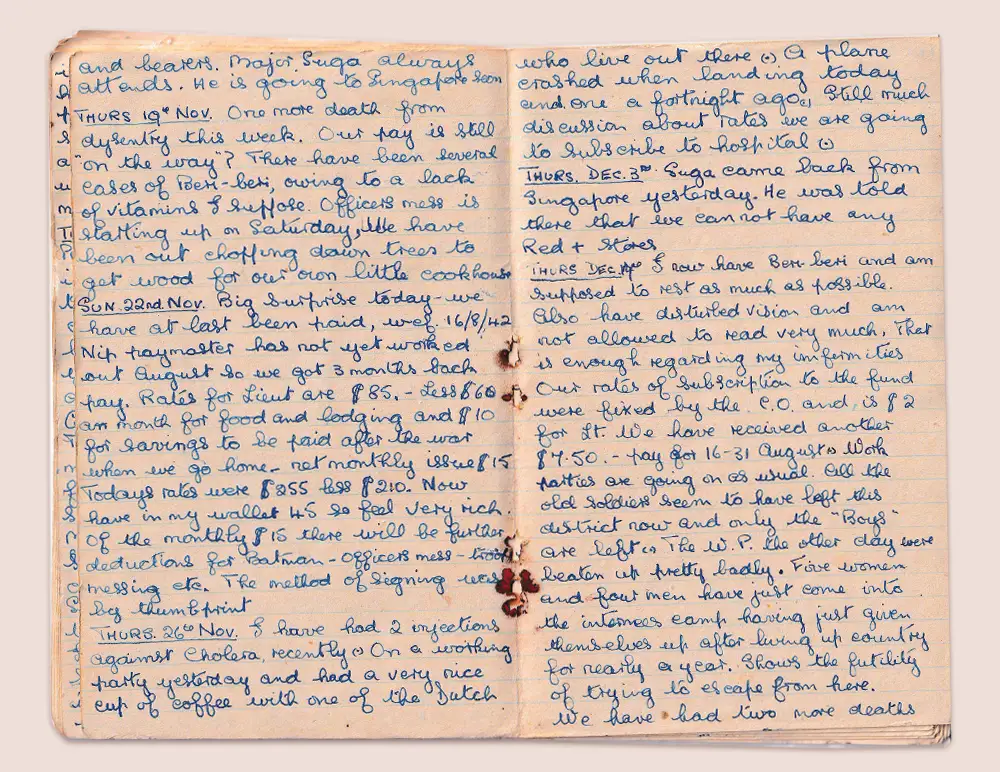 and bearers. Major Suga always
attends. He is going to Singapore soon
THURS 19th NOV. One more death from
dysentry this week. Our pay is still
"on the way"? There have been several
cases of Beri-beri, owing to a lack
of vitamins I suppose. Officers mess is
starting up on Saturday, We have
been out chopping down trees to
get wood for our own little cookhouse
SUN. 22nd. NOV. Big surprise today - we
have at last been paid, wef. 16/8/42
Nip paymaster has not yet worked
out August so we got 3 months back
pay. Rates for Lieut are $85. - Less $60
a month for food and lodging and $10
for savings to be paid after the war
when we go home - net monthly issue $15
Todays rates were $255 less $210. Now
have in my wallet 45 so feel very rich.
Of the monthly $15 there will be further
deductions for Batman - Officers mess -
messing etc. The method of signing was
by thumbprint
THURS. 26th NOV. I have had 2 injections
against Cholera, recently. On a working
party yesterday and had a very nice
cup of coffee with one of the Dutch
who live out there. A plane
crashed when landing today
and one a fortnight ago. Still much
discussion about rates we are going
to subscribe to hospital.
THURS. DEC. 3rd. Suga came back from
Singapore yesterday. He was told
there that we can not have any
Red + Stores
THURS DEC. I now have Beri-beri and am
supposed to rest as much as possible.
Also have disturbed vision and am
not allowed to read very much. That
is enough regarding my infirmities
Our rates of subscription to the fund
were fixed by the C.O. and, is $2
for Lt. We have received another
$7.50. - pay for 16-31 August. Work
parties are going on as usual. All the
old soldiers seem to have left this
district now and only the "Boys"
are left. The W.P. the other day were
beaten up pretty badly. Five women
and four men have just come into
the internees camp having just given
themselves up after living up country
for nearly a year. Shows the futility
of trying to escape from here.
We have had two more deaths